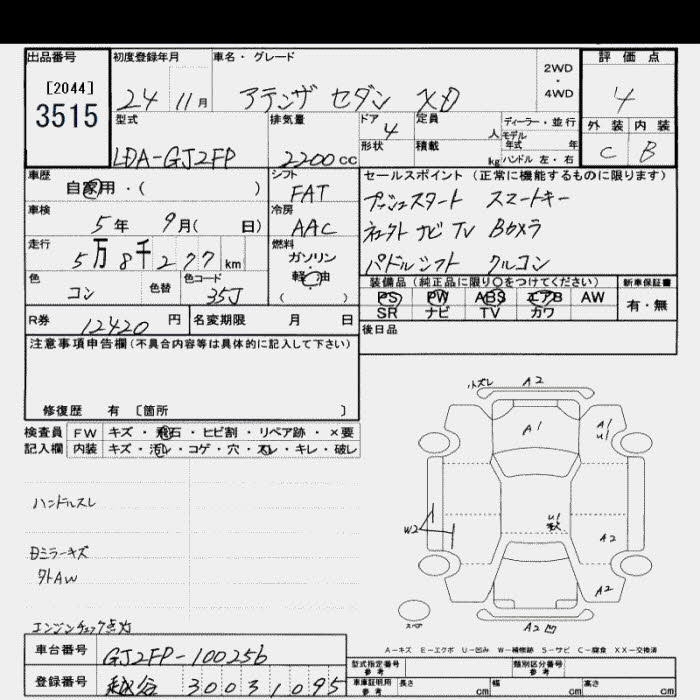 出品番号
[2044]
3515
初度登録年月
24 11月
車名・グレード
アテンザ セダン XD
2WD
・
4WD
評価点
4
外装 内装
C B
型式
LDA-GJ2FP
排気量
2200cc
ドア 4
形状
定員 人
積載 kg
ディーラー・並行
モデル
年式 年
ハンドル 左・右
車歴
自家用・( )
シフト
FAT
車検
5年 9月( 日)
冷房
AAC
走行
5万8千277km
燃料
ガソリン
軽油
( )
色
コン
色替
色コード
35J
セールスポイント (正常に機能するものに限ります)
プッシュスタート スマートキー
ナビ TV Bカメラ
パドルシフト クルコン
装備品(純正品に限り○をつけてください)
PS PW ABS エアB AW
SR ナビ TV カワ
新車保証書
有・無
R券 12420円
名変期限 月 日
後日品
注意事項申告欄(不具合内容等は具体的に記入して下さい)
修復歴 有 〔箇所 〕
検査員 FW キズ・飛石・ヒビ割・リペア跡・×要
記入欄 内装 キズ・汚レ・コゲ・穴・スレ・キレ・破レ
ハンドルスレ
ミラーキズ
外AW
エンジンチェック点灯
小ズレ A2
A1
A1
U1
W2
U1
A2
A2
A2 凹
スペア
A-キズ E-エクボ U-凹み W-補修跡 S-サビ C-腐食 XX-交換済
車台番号 GJ2FP-100256
登録番号 越谷 300 31095
型式指定番号
参考
類別区分番号
参考
車庫証明用
参考
長さ cm 幅 cm 高さ cm